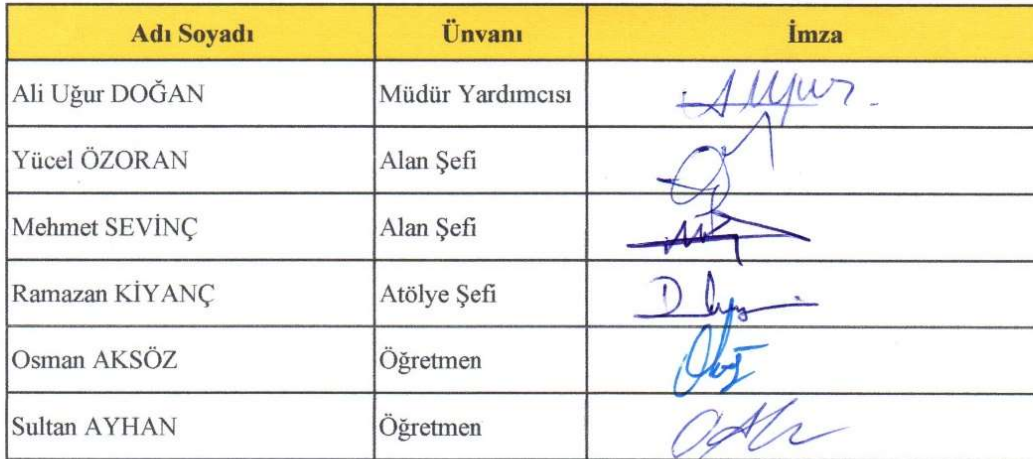 Adı Soyadı Ünvanı İmza
Ali Uğur DOĞAN Müdür Yardımcısı
Yücel ÖZORAN Alan Şefi
Mehmet SEVİNÇ Alan Şefi
Ramazan KİYANÇ Atölye Şefi
Osman AKSÖZ Öğretmen
Sultan AYHAN Öğretmen